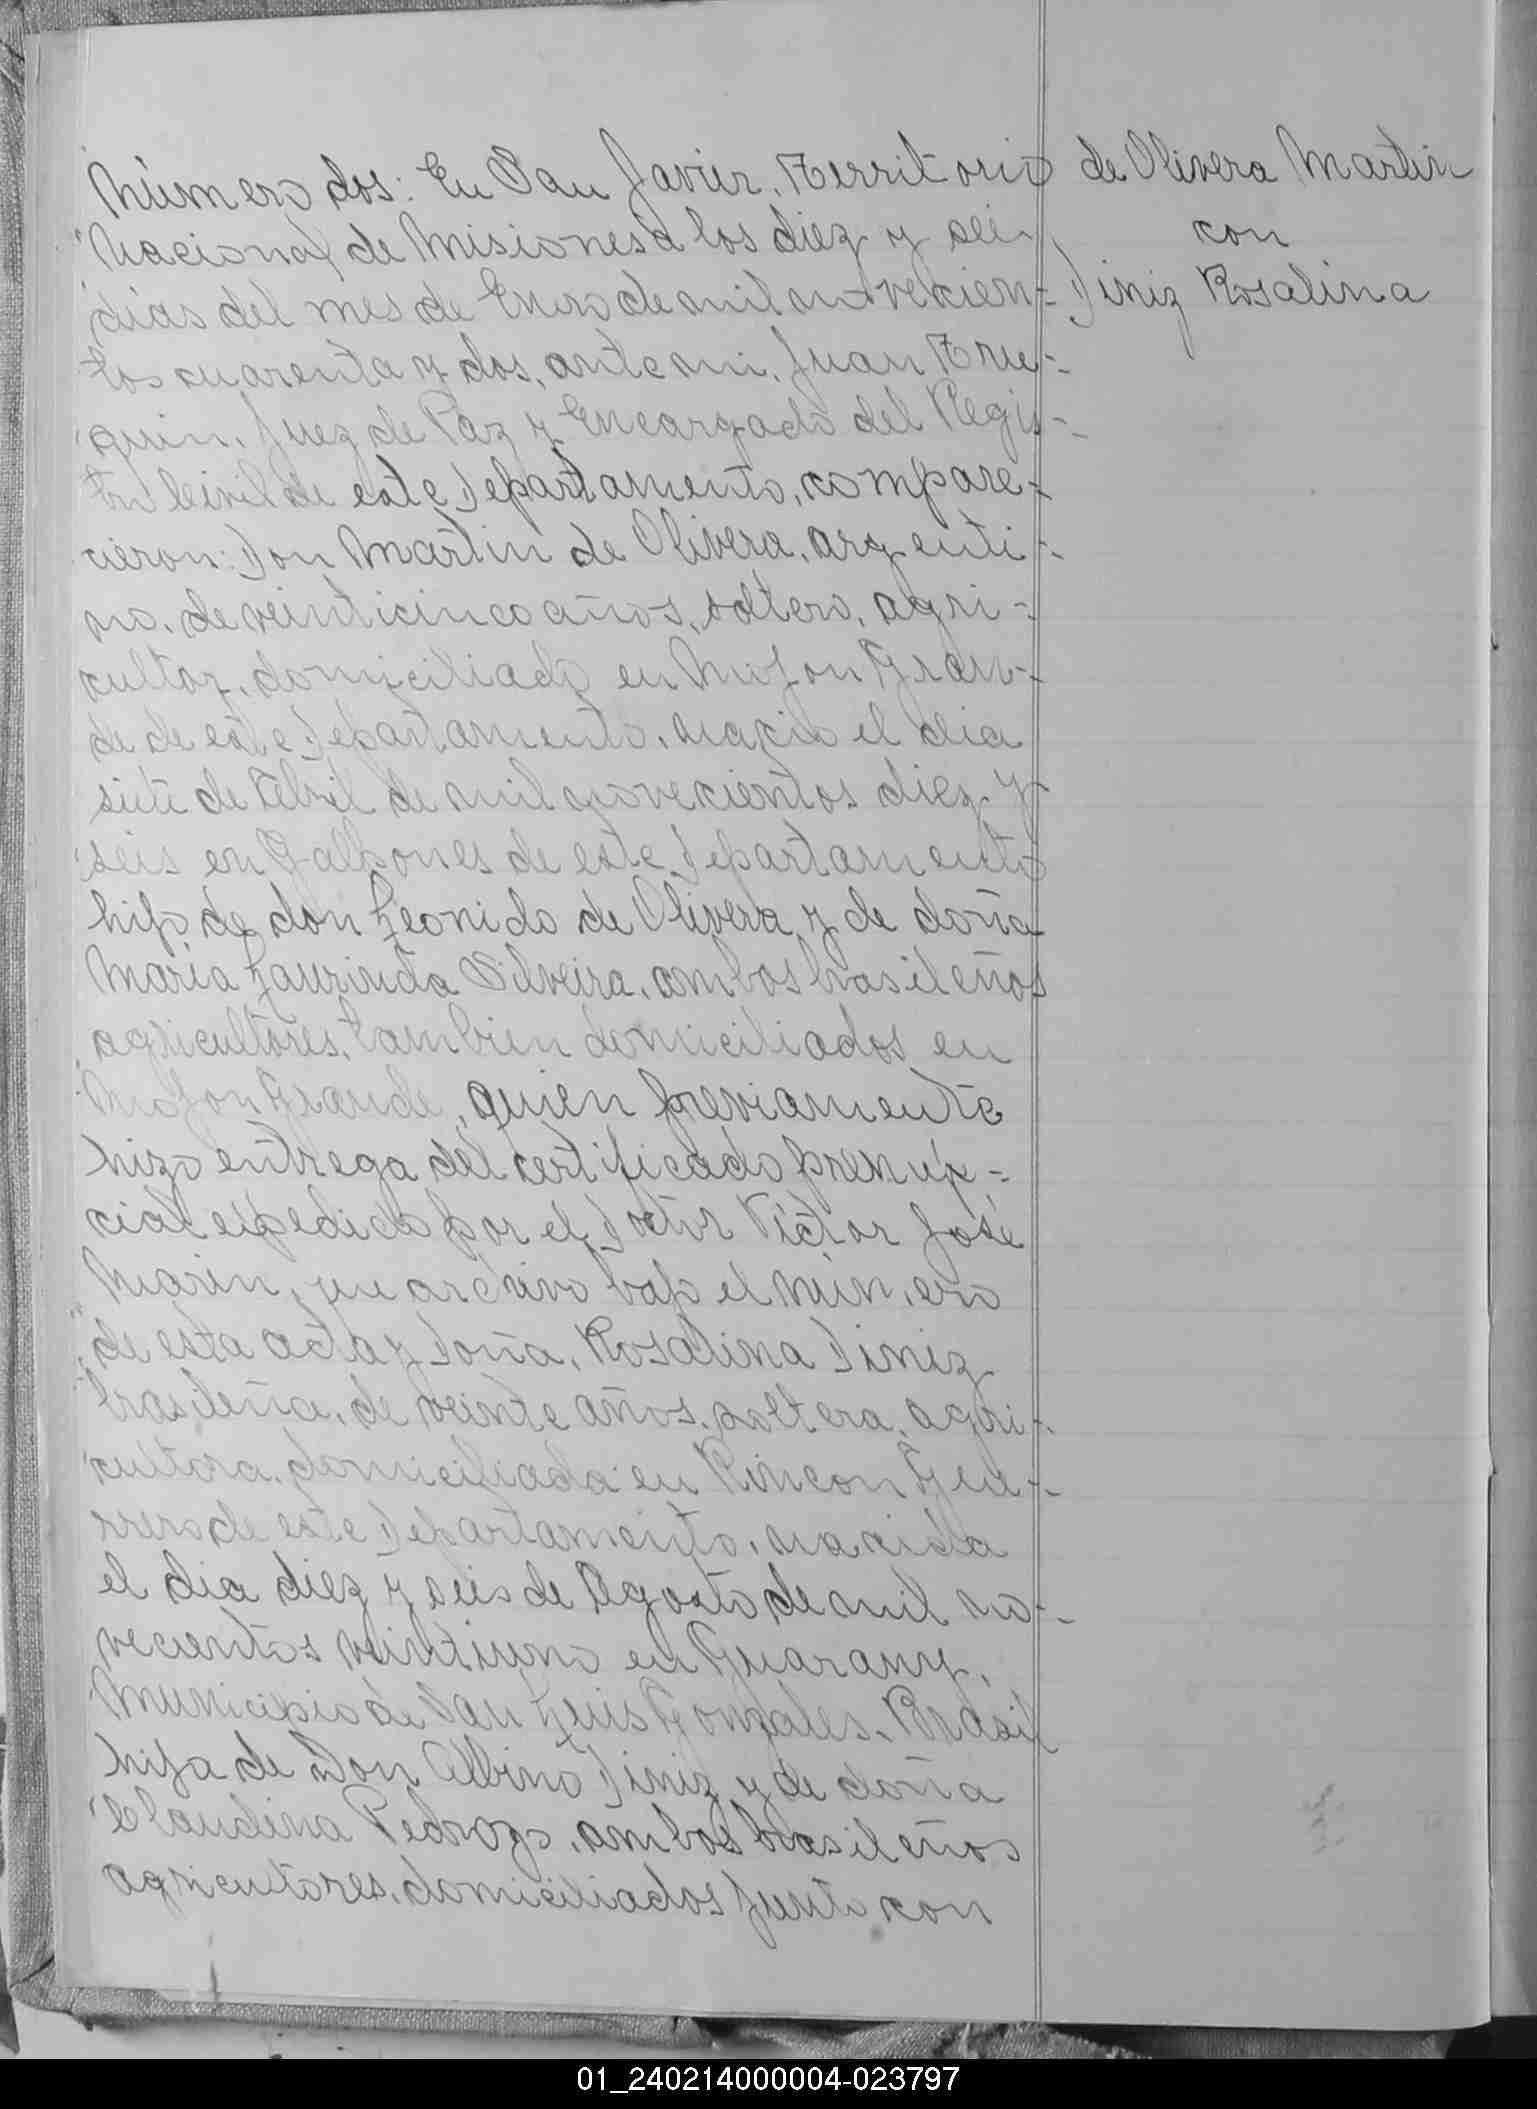 Número dos: En San Javier, Territorio
Nacional de Misiones a los diez y seis
días del mes de Enero de mil novecien-
tos cuarenta y dos, ante mi, Juan True-
quin, Juez de Paz y Encargado del Regis-
tro Civil de este Departamento, compare-
cieron: Don Martin de Olivera, argenti-
no, de veinticinco años, soltero, agri-
cultor, domiciliado en Mojon Gran-
de de este Departamento, nació el dia
siete de Abril de mil novecientos diez y
seis en Galpones de este Departamento
hijo de don Leonido de Olivera y de doña
Maria Laurinda Silveira, ambos brasileños
agricultores, tambien domiciliados en
Mojon Grande, quien previamente
hizo entrega del certificado prenúp-
cial expedido por el Doctor Víctor José
Marin, que archivo bajo el número
de esta acta y Doña, Rosalina Diniz
brasileña, de veinte años, soltera, agri-
cultora, domiciliada en Rincon Gue-
rrero de este Departamento, nacida
el dia diez y seis de Agosto de mil no-
vecientos veintiuno en Guarany,
Municipio de San Luis Gonzales, Brasil
hija de Don Albino Diniz y de doña
Claudina Pedrozo, ambos brasileños
agricultores, domiciliados junto con
de Olivera Martin
con
Diniz Rosalina
01_240214000004-023797